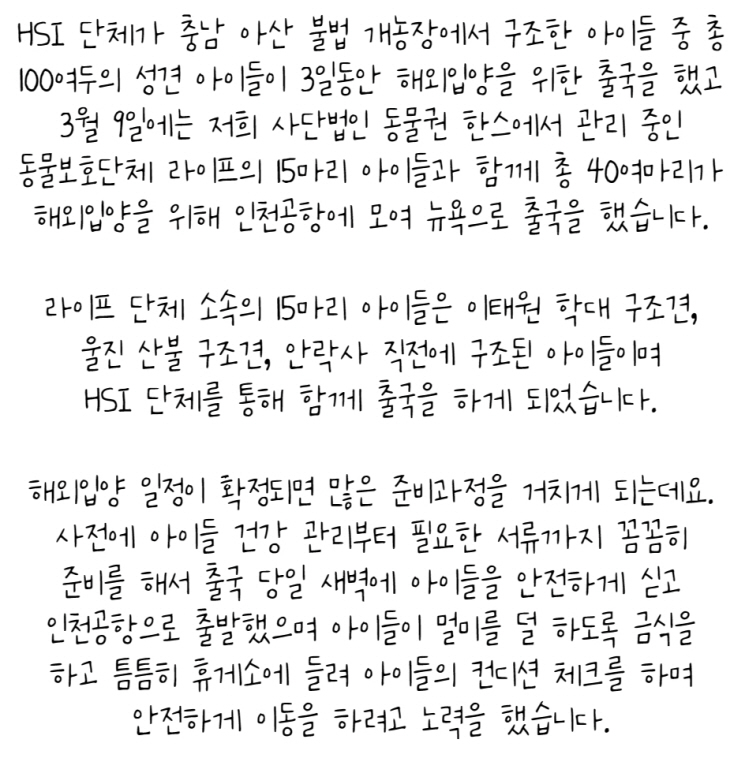 HSI 단체가 충남 아산 불법 개농장에서 구조한 아이들 중 총
100여두의 성견 아이들이 3일동안 해외입양을 위한 출국을 했고
3월 9일에는 저희 사단법인 동물권 한스에서 관리 중인
동물보호단체 라이프의 15마리 아이들과 함께 총 40여마리가
해외입양을 위해 인천공항에 모여 뉴욕으로 출국을 했습니다.
라이프 단체 소속의 15마리 아이들은 이태원 학대 구조견,
울진 산불 구조견, 안락사 직전에 구조된 아이들이며
HSI 단체를 통해 함께 출국을 하게 되었습니다.
해외입양 일정이 확정되면 많은 준비과정을 거치게 되는데요.
사전에 아이들 건강 관리부터 필요한 서류까지 꼼꼼히
준비를 해서 출국 당일 새벽에 아이들을 안전하게 싣고
인천공항으로 출발했으며 아이들이 멀미를 덜 하도록 금식을
하고 틈틈히 휴게소에 들려 아이들의 컨디션 체크를 하며
안전하게 이동을 하려고 노력을 했습니다.